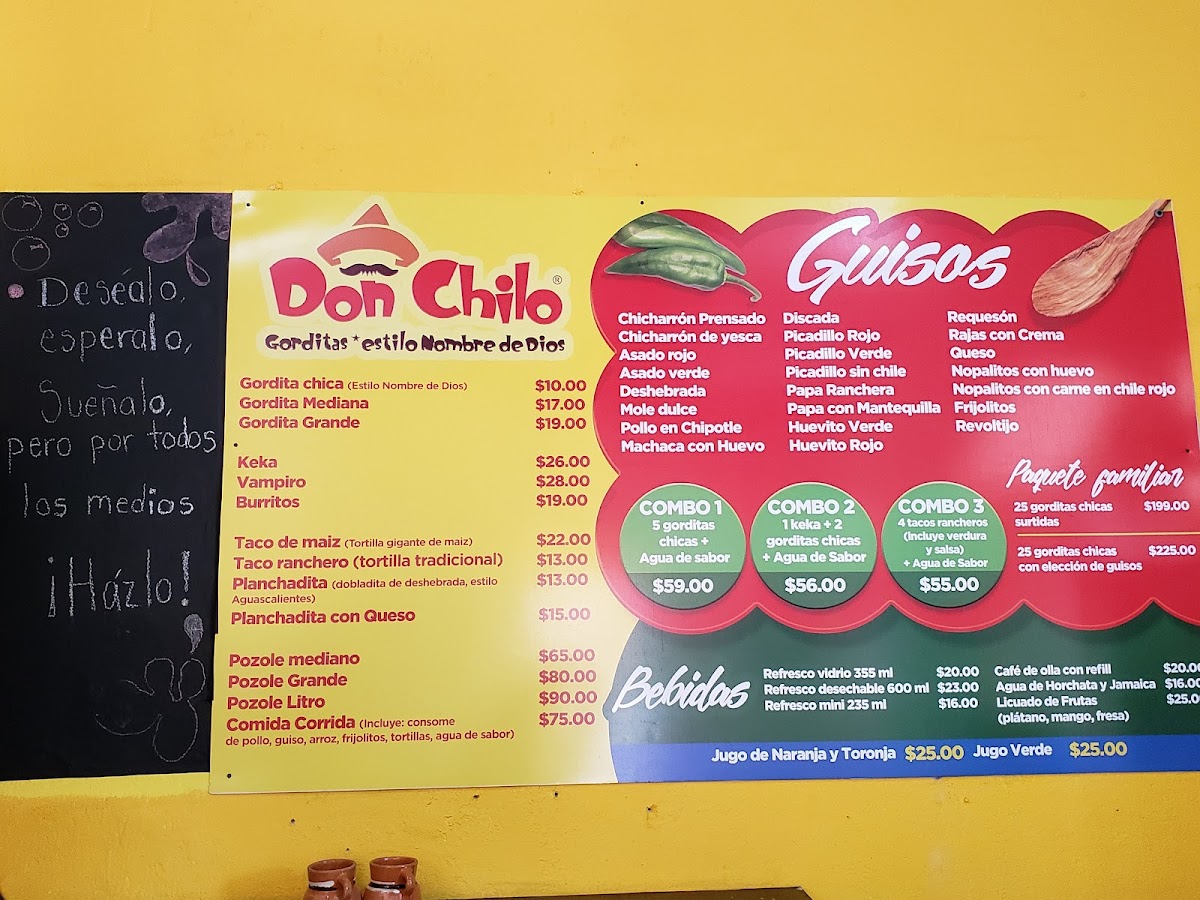 Deséalo,
esperalo,
Sueñalo,
pero por todos
los medios
¡Házlo!
Don Chilo®
Gorditas * estilo Nombre de Dios
Gordita chica (Estilo Nombre de Dios) $10.00
Gordita Mediana $17.00
Gordita Grande $19.00
Keka $26.00
Vampiro $28.00
Burritos $19.00
Taco de maiz (Tortilla gigante de maiz) $22.00
Taco ranchero (tortilla tradicional) $13.00
Planchadita (dobladita de deshebrada, estilo $13.00
Aguascalientes)
Planchadita con Queso $15.00
Pozole mediano $65.00
Pozole Grande $80.00
Pozole Litro $90.00
Comida Corrida (Incluye: consome $75.00
de pollo, guiso, arroz, frijolitos, tortillas, agua de sabor)
Guisos
Chicharrón Prensado
Chicharrón de yesca
Asado rojo
Asado verde
Deshebrada
Mole dulce
Pollo en Chipotle
Machaca con Huevo
Discada
Picadillo Rojo
Picadillo Verde
Picadillo sin chile
Papa Ranchera
Papa con Mantequilla
Huevito Verde
Huevito Rojo
Requesón
Rajas con Crema
Queso
Nopalitos con huevo
Nopalitos con carne en chile rojo
Frijolitos
Revoltijo
COMBO 1
5 gorditas
chicas +
Agua de sabor
$59.00
COMBO 2
1 keka + 2
gorditas chicas
+ Agua de Sabor
$56.00
COMBO 3
4 tacos rancheros
(Incluye verdura
y salsa)
+ Agua de Sabor
$55.00
Paquete familiar
25 gorditas chicas $199.00
surtidas
25 gorditas chicas $225.00
con elección de guisos
Bebidas
Refresco vidrio 355 ml $20.00
Refresco desechable 600 ml $23.00
Refresco mini 235 ml $16.00
Café de olla con refill $20.00
Agua de Horchata y Jamaica $16.00
Licuado de Frutas $25.00
(plátano, mango, fresa)
Jugo de Naranja y Toronja $25.00 Jugo Verde $25.00